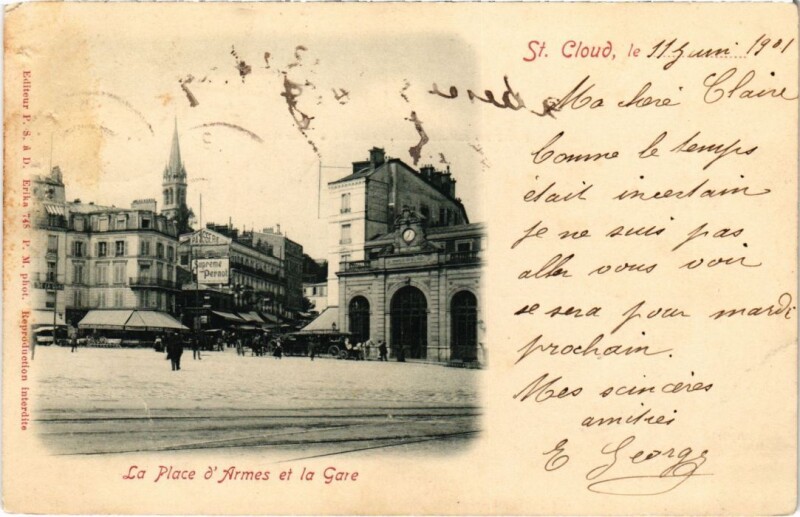 St. Cloud, le 11 Juni 1901
Ma chère Claire
Comme le temps
était incertain
je ne suis pas
aller vous voir
ce sera pour mardi
prochain.
Mes sincères
amitiés
E George
Editeur P. S. à D. Erika 748 P. M. phot. Reproduction interdite
Suprême
Pernot
La Place d'Armes et la Gare